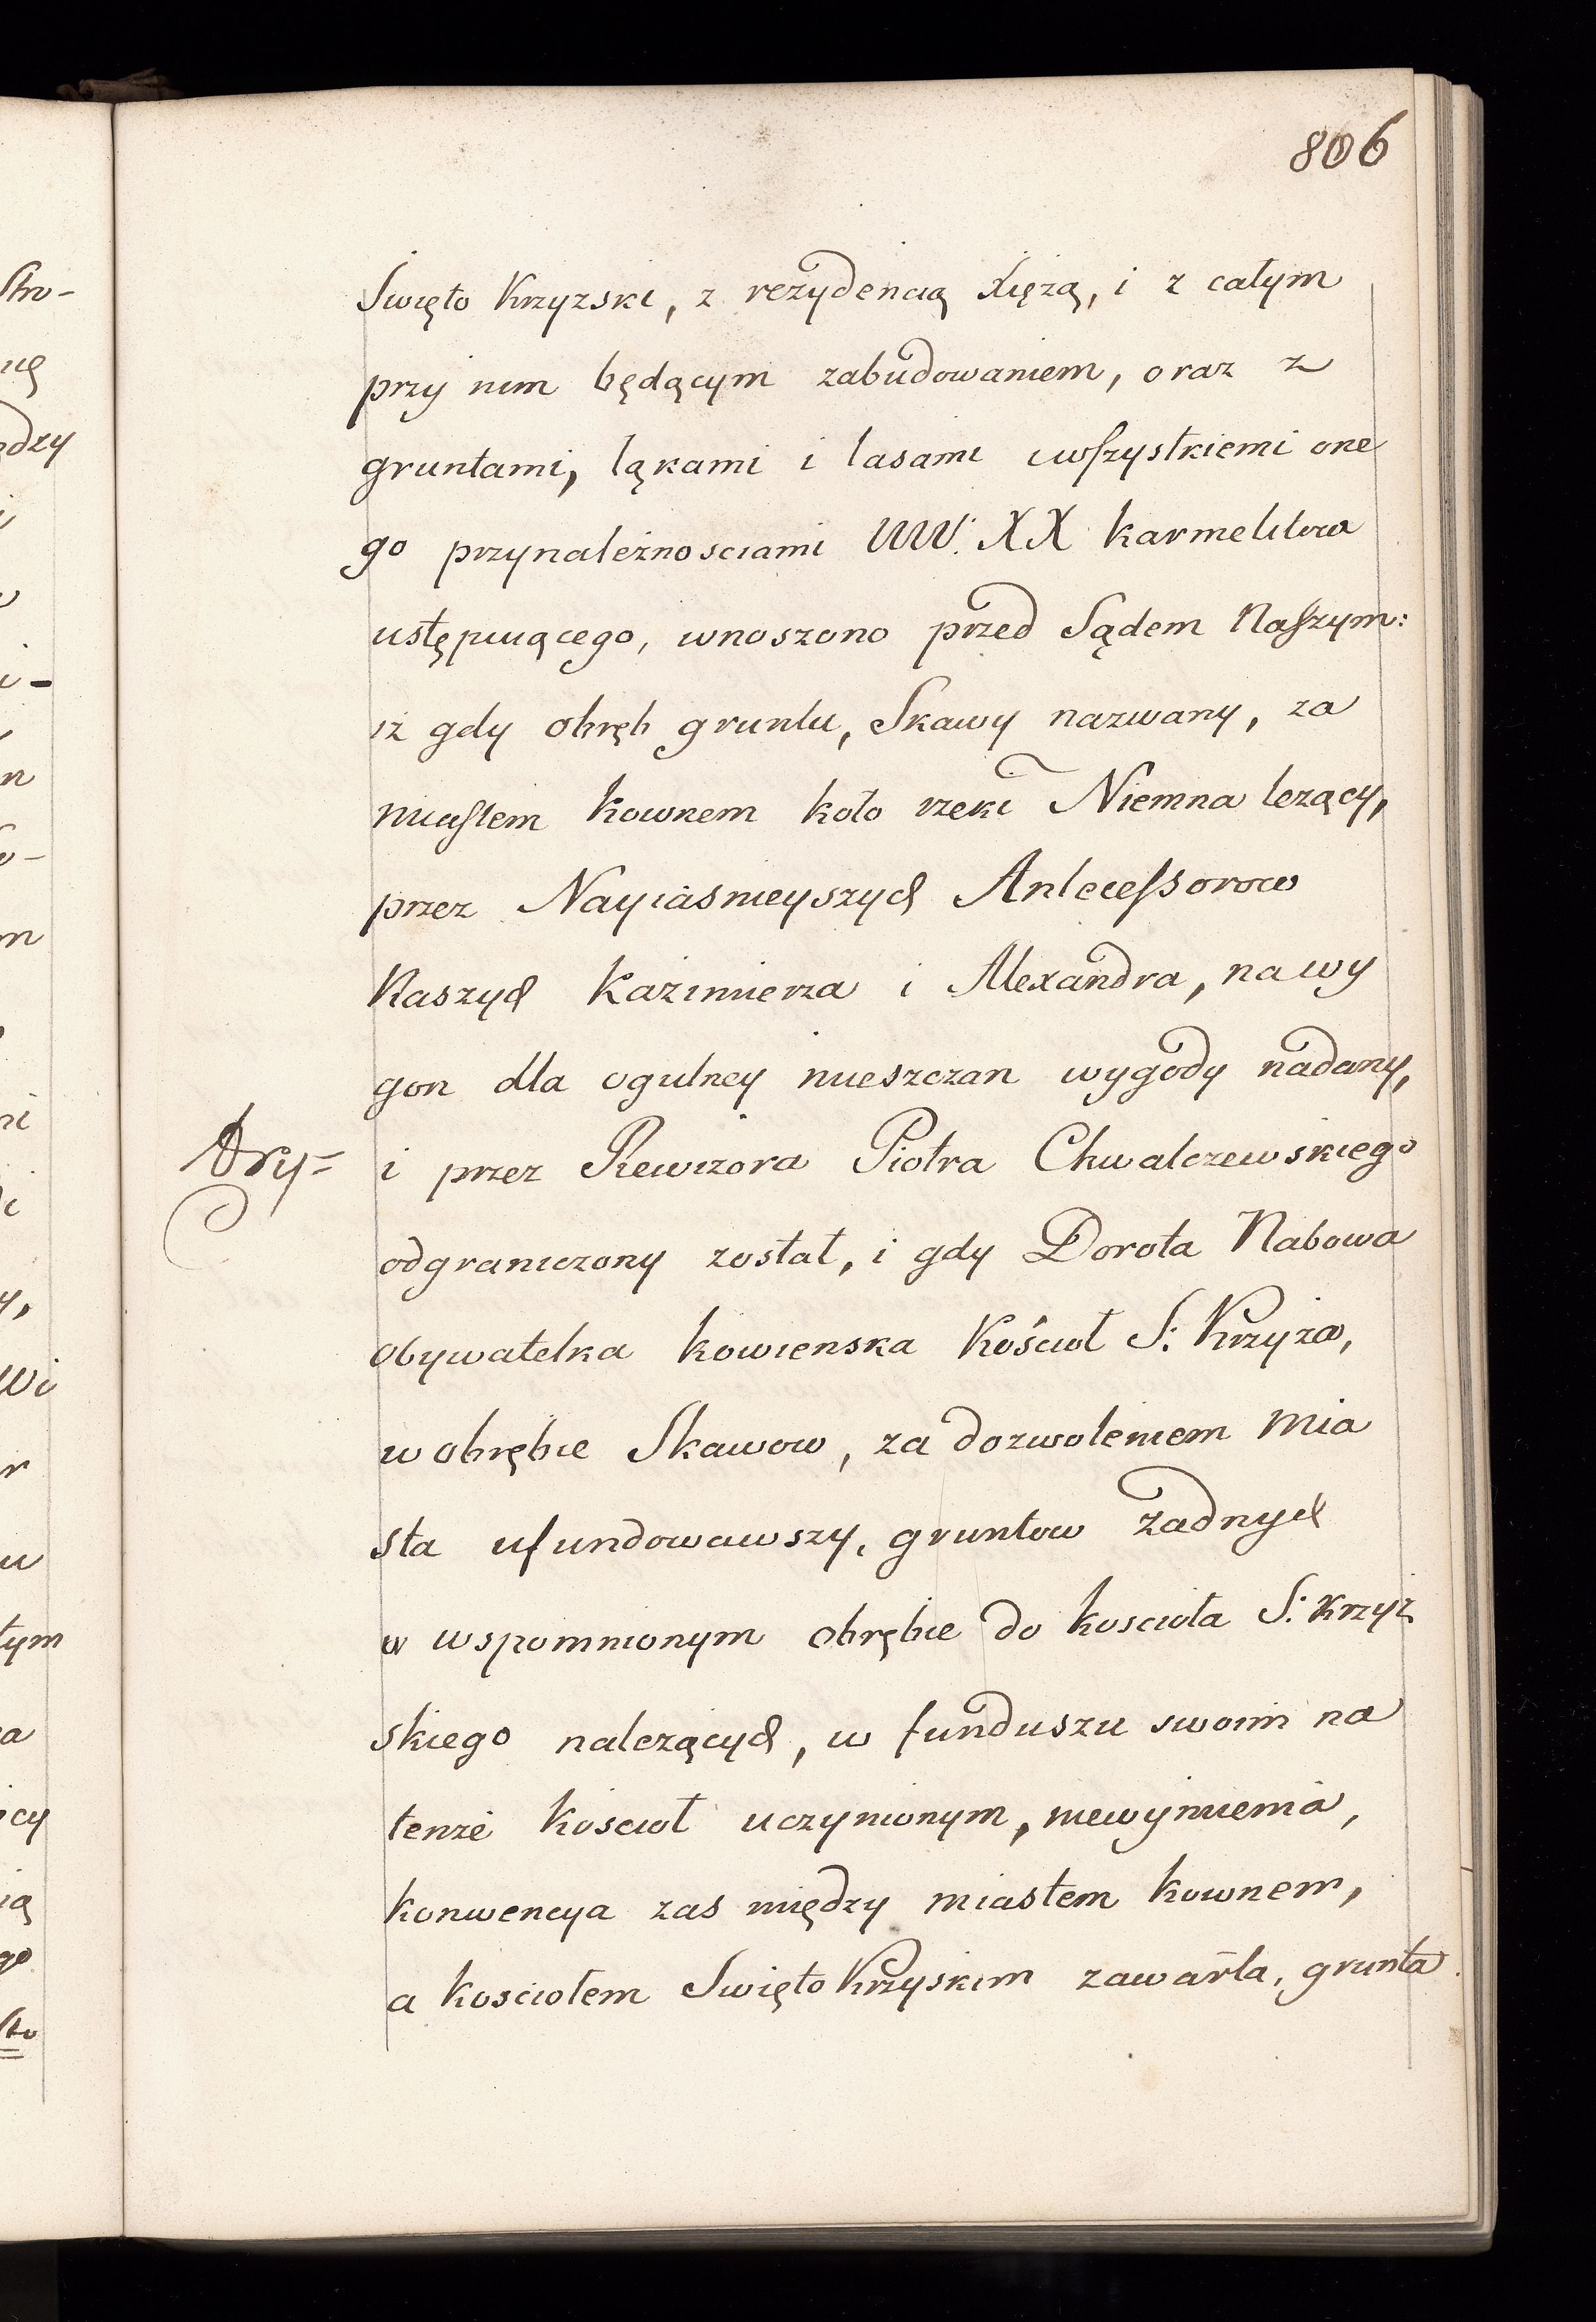 806
Swięto Krzyzski, z rezydencią Xiężą, i z całym
przy nim będącym zabudowaniem, oraz z
gruntami, łąkami i lasami wszystkiemi one
go przynależnosciami WW. XX Karmelitow
ustępuiącego, wnoszono przed Sądem Naszym:
iż gdy obręb gruntu, Skawy nazwany, za
miastem Kownem koło rzeki Niemna leżący,
przez Nayiasnieyszych Antecessorow
Naszych Kazimierza i Alexandra, na wy
gon dla ogulney mieszczan wygody nadany,
i przez Rewizora Piotra Chwalczewskiego
odgraniczony został, i gdy Dorota Nabowa
obywatelka kowienska Kościoł S: Krzyża,
w obrębie Skawow, za dozwoleniem Mia
sta ufundowawszy, gruntow żadnych
w wspomnionym obrębie do koscioła S: Krzyż
skiego należących, w funduszu swoim na
tenże Kościoł uczynionym, niewymienia,
konwencya zas między miastem Kownem,
a kosciołem Swięto Krzyskim zawarła, grunta